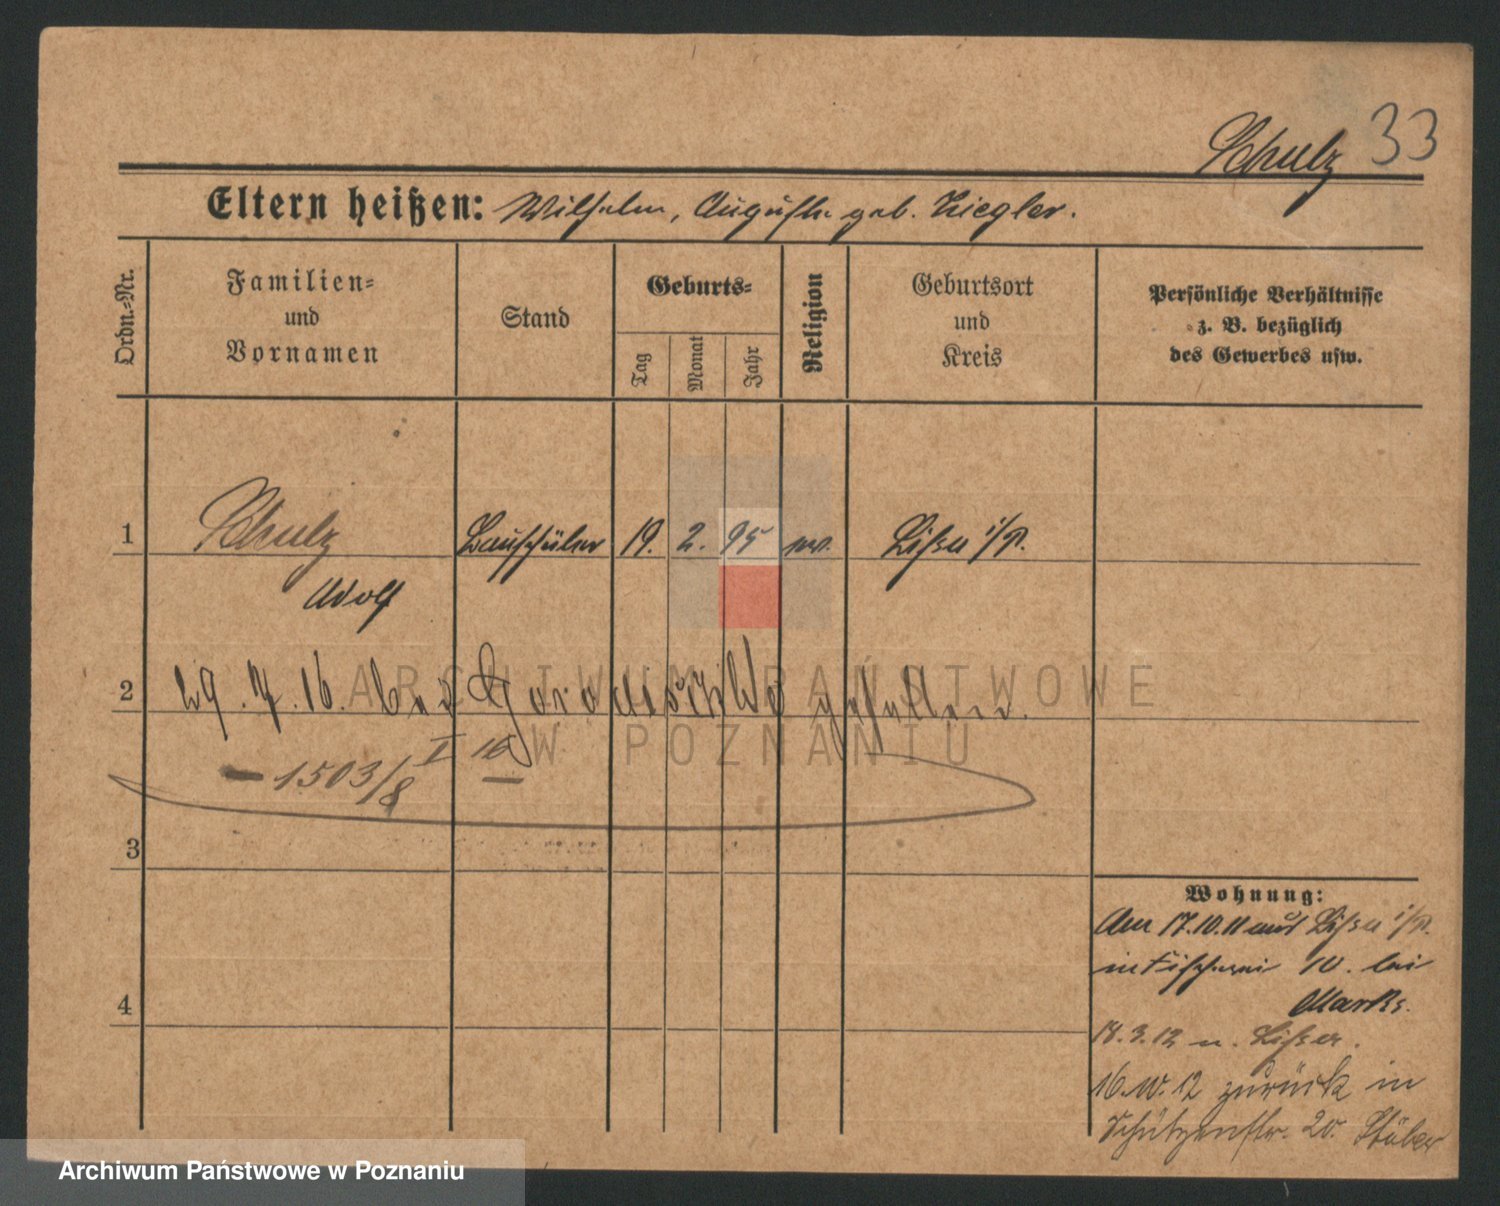 Schulz 33
Eltern heißen: Wilhelm, Auguste geb. Ziegler.
Ordn.-Nr.
Familien-
und
Vornamen
Stand
Geburts-
Tag
Monat
Jahr
Religion
Geburtsort
und
Kreis
Persönliche Verhältnisse
z. B. bezüglich
des Gewerbes usw.
1 Schulz Bauschüler 19. 2. 95 ev. Lissa i/P.
Adolf
ARCHIWUM PAŃSTWOWE
W POZNANIU
2 29. 7. 16. bei Gorodischtsche gefallen.
1503/8 I 16
3
4
Wohnung:
Am 17.10.11 aus Lissa i/P.
in Fischerei 10. bei
Marks.
18.3.12 n. Lissa.
16.10.12 zurück in
Schützenstr. 20. Stüber
Archiwum Państwowe w Poznaniu